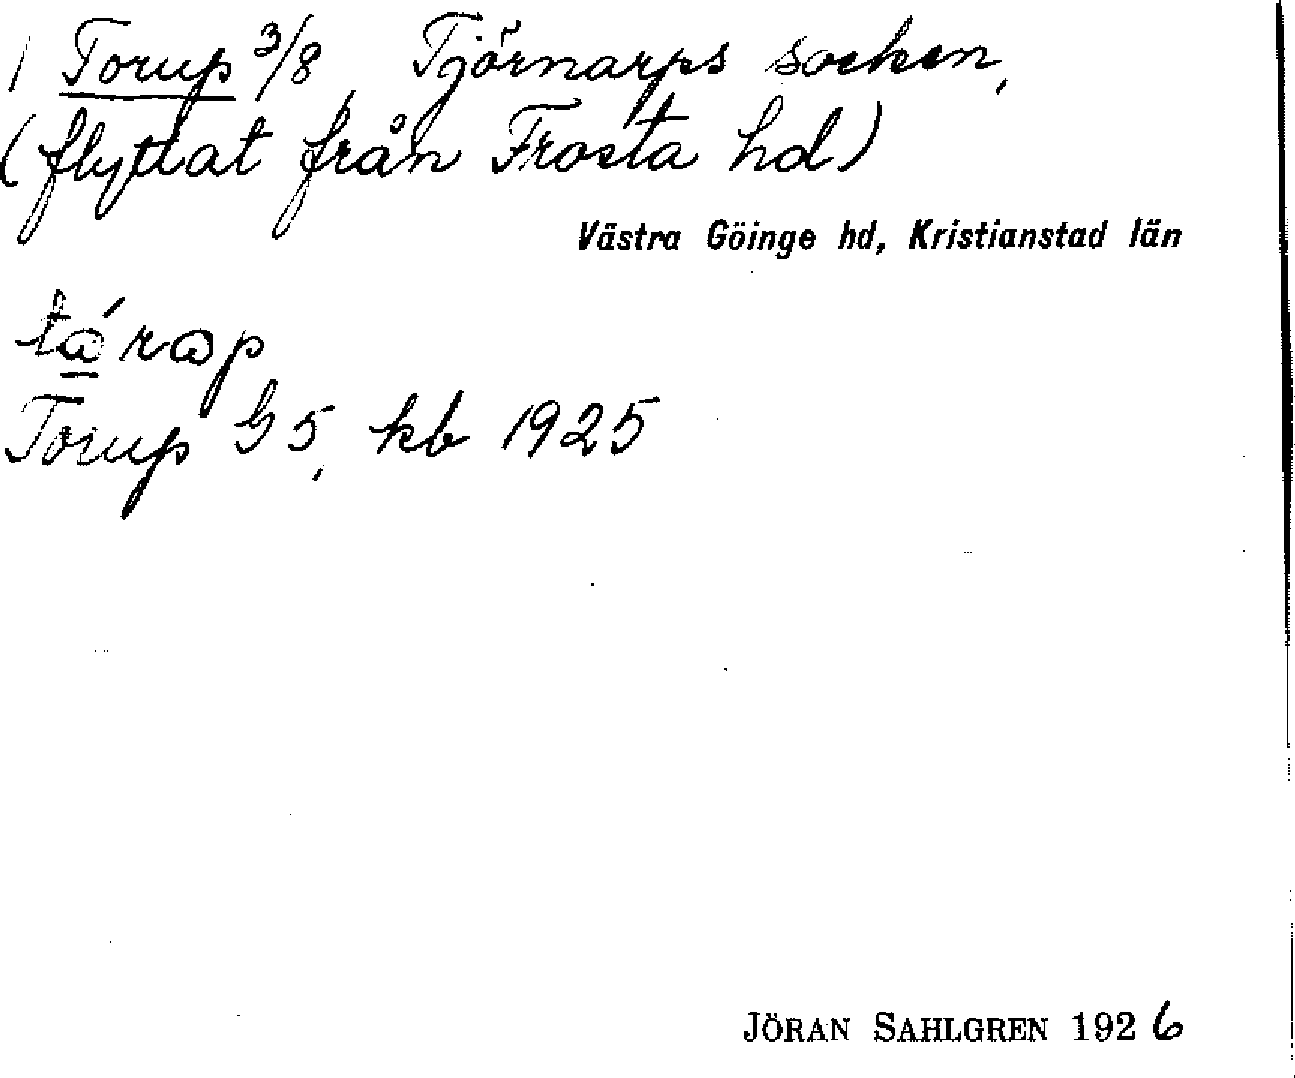 1 Torup 3/8, Tjörnarps socken,
(flyttat från Frosta hd)
Västra Göinge hd, Kristianstad län
tárap
Torup G5, kb 1925
JÖRAN SAHLGREN 1926